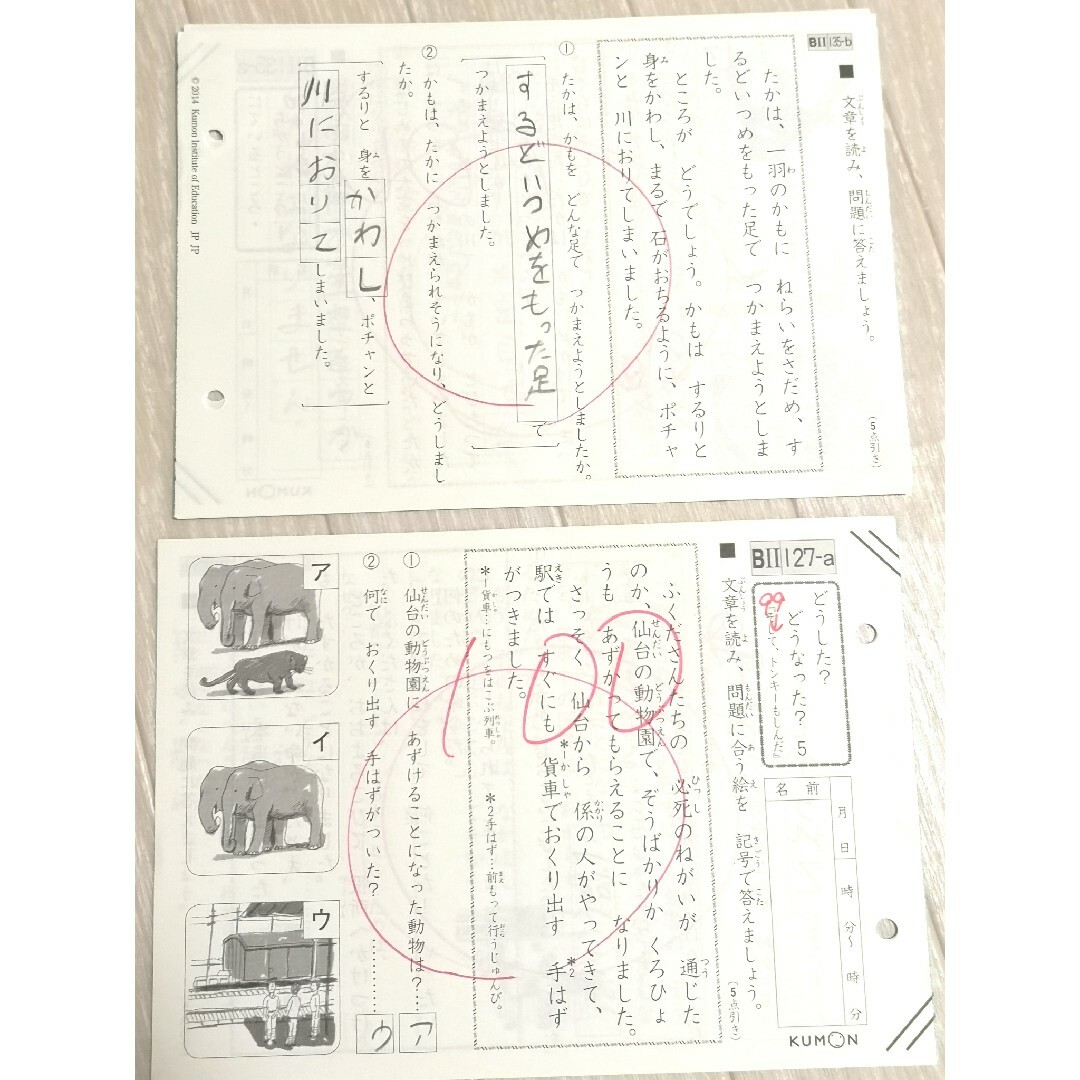 BII 135-b
■ 文章を読み、問題に答えましょう。
(5点引き)
たかは、一羽のかもに ねらいをさだめ、す
るどいつめをもった足で つかまえようとしま
した。
ところが どうでしょう。かもは するりと
身をかわし、まるで 石がおちるように、ポチャ
ンと 川におりてしまいました。
① たかは、かもを どんな足で つかまえようとしましたか。
するどいつめをもった足で
つかまえようとしました。
② かもは、たかに つかまえられそうになり、どうしまし
たか。
するりと 身をかわし、ポチャンと
川におりてしまいました。
© 2014 Kumon Institute of Education JP JP
BII 127-a
どうした?
どうなった? 5
て、トンキーもしんだ」
名前
月 日
時 分〜 時 分
KUMON
■ 文章を読み、問題に合う絵を 記号で答えましょう。
(5点引き)
ふくださんたちの 必死のねがいが 通じた
のか、仙台の動物園で、ぞうばかりか くろひょ
うも あずかってもらえることに なりました。
さっそく 仙台から 係の人がやってきて、
駅では すぐにも *1貨車でおくり出す *2手はず
がつきました。
*1貨車…にもつをはこぶ列車。 *2手はず…前もって行うじゅんび。
100
① 仙台の動物園に あずけることになった動物は?… ア
② 何で おくり出す 手はずがついた? ………… ウ
ア
イ
ウ